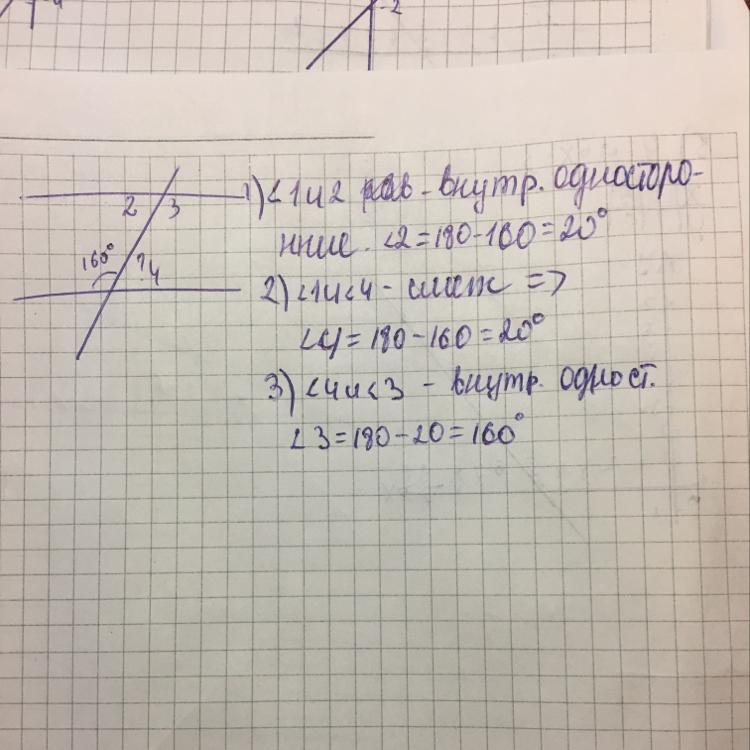 2
2 3
160° ? 4
1) <1 и 2 - внутр. односторо-
нние. <2=180-160=20°
2) <1 и <4 - смеж =>
<4=180-160=20°
3) <4 и <3 - внутр. одност.
<3=180-20=160°